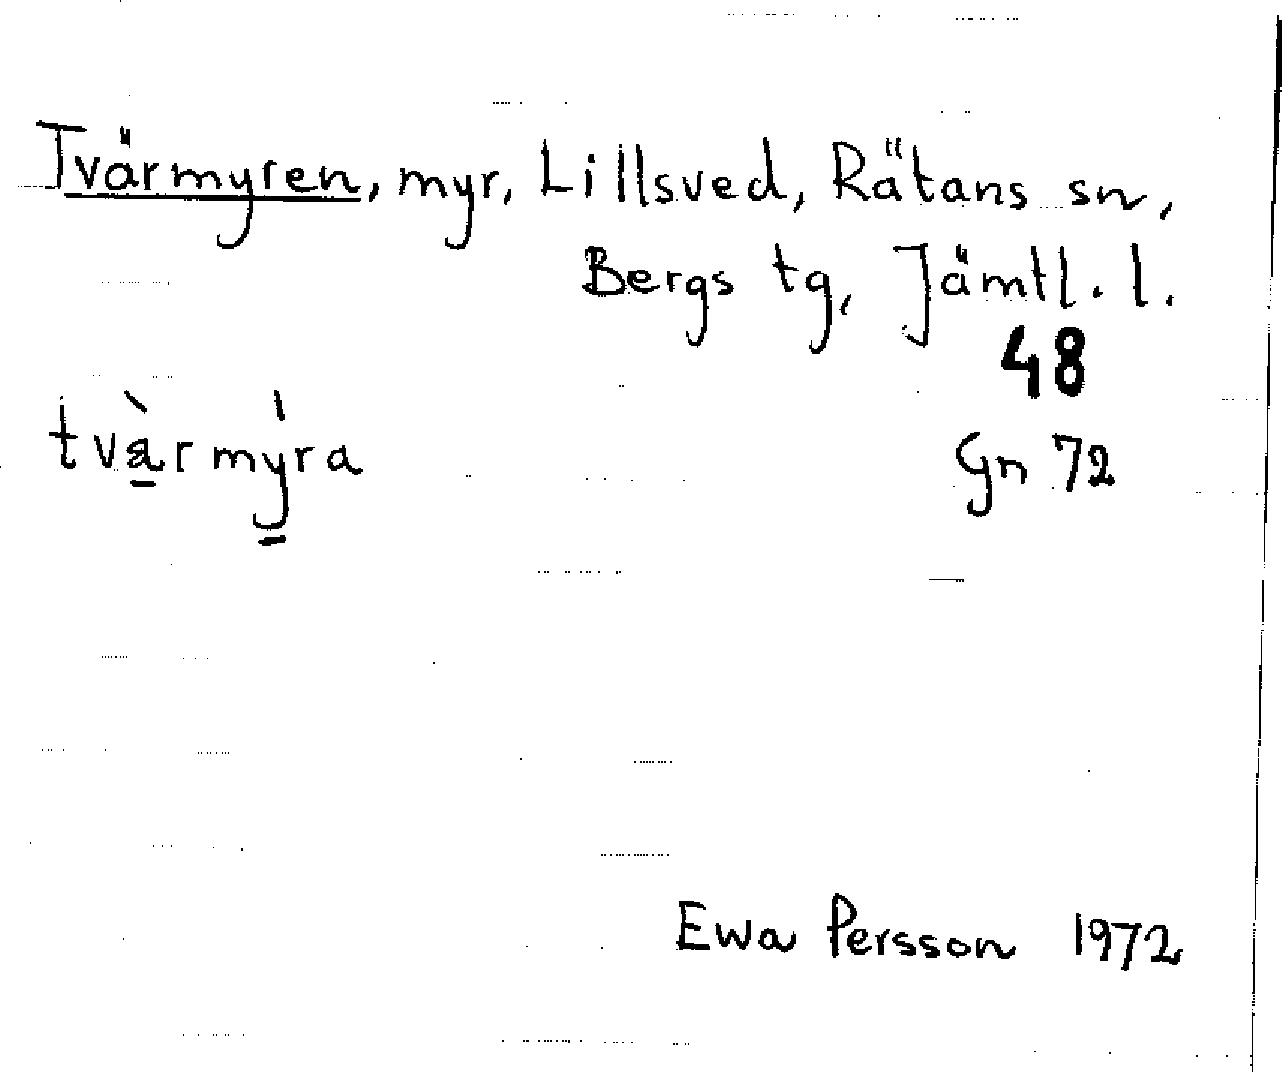 Tvärmyren, myr, Lillsved, Rätans sn,
Bergs tg, Jämtl. l.
48
tvàrmýra
Gn 72
Ewa Persson 1972